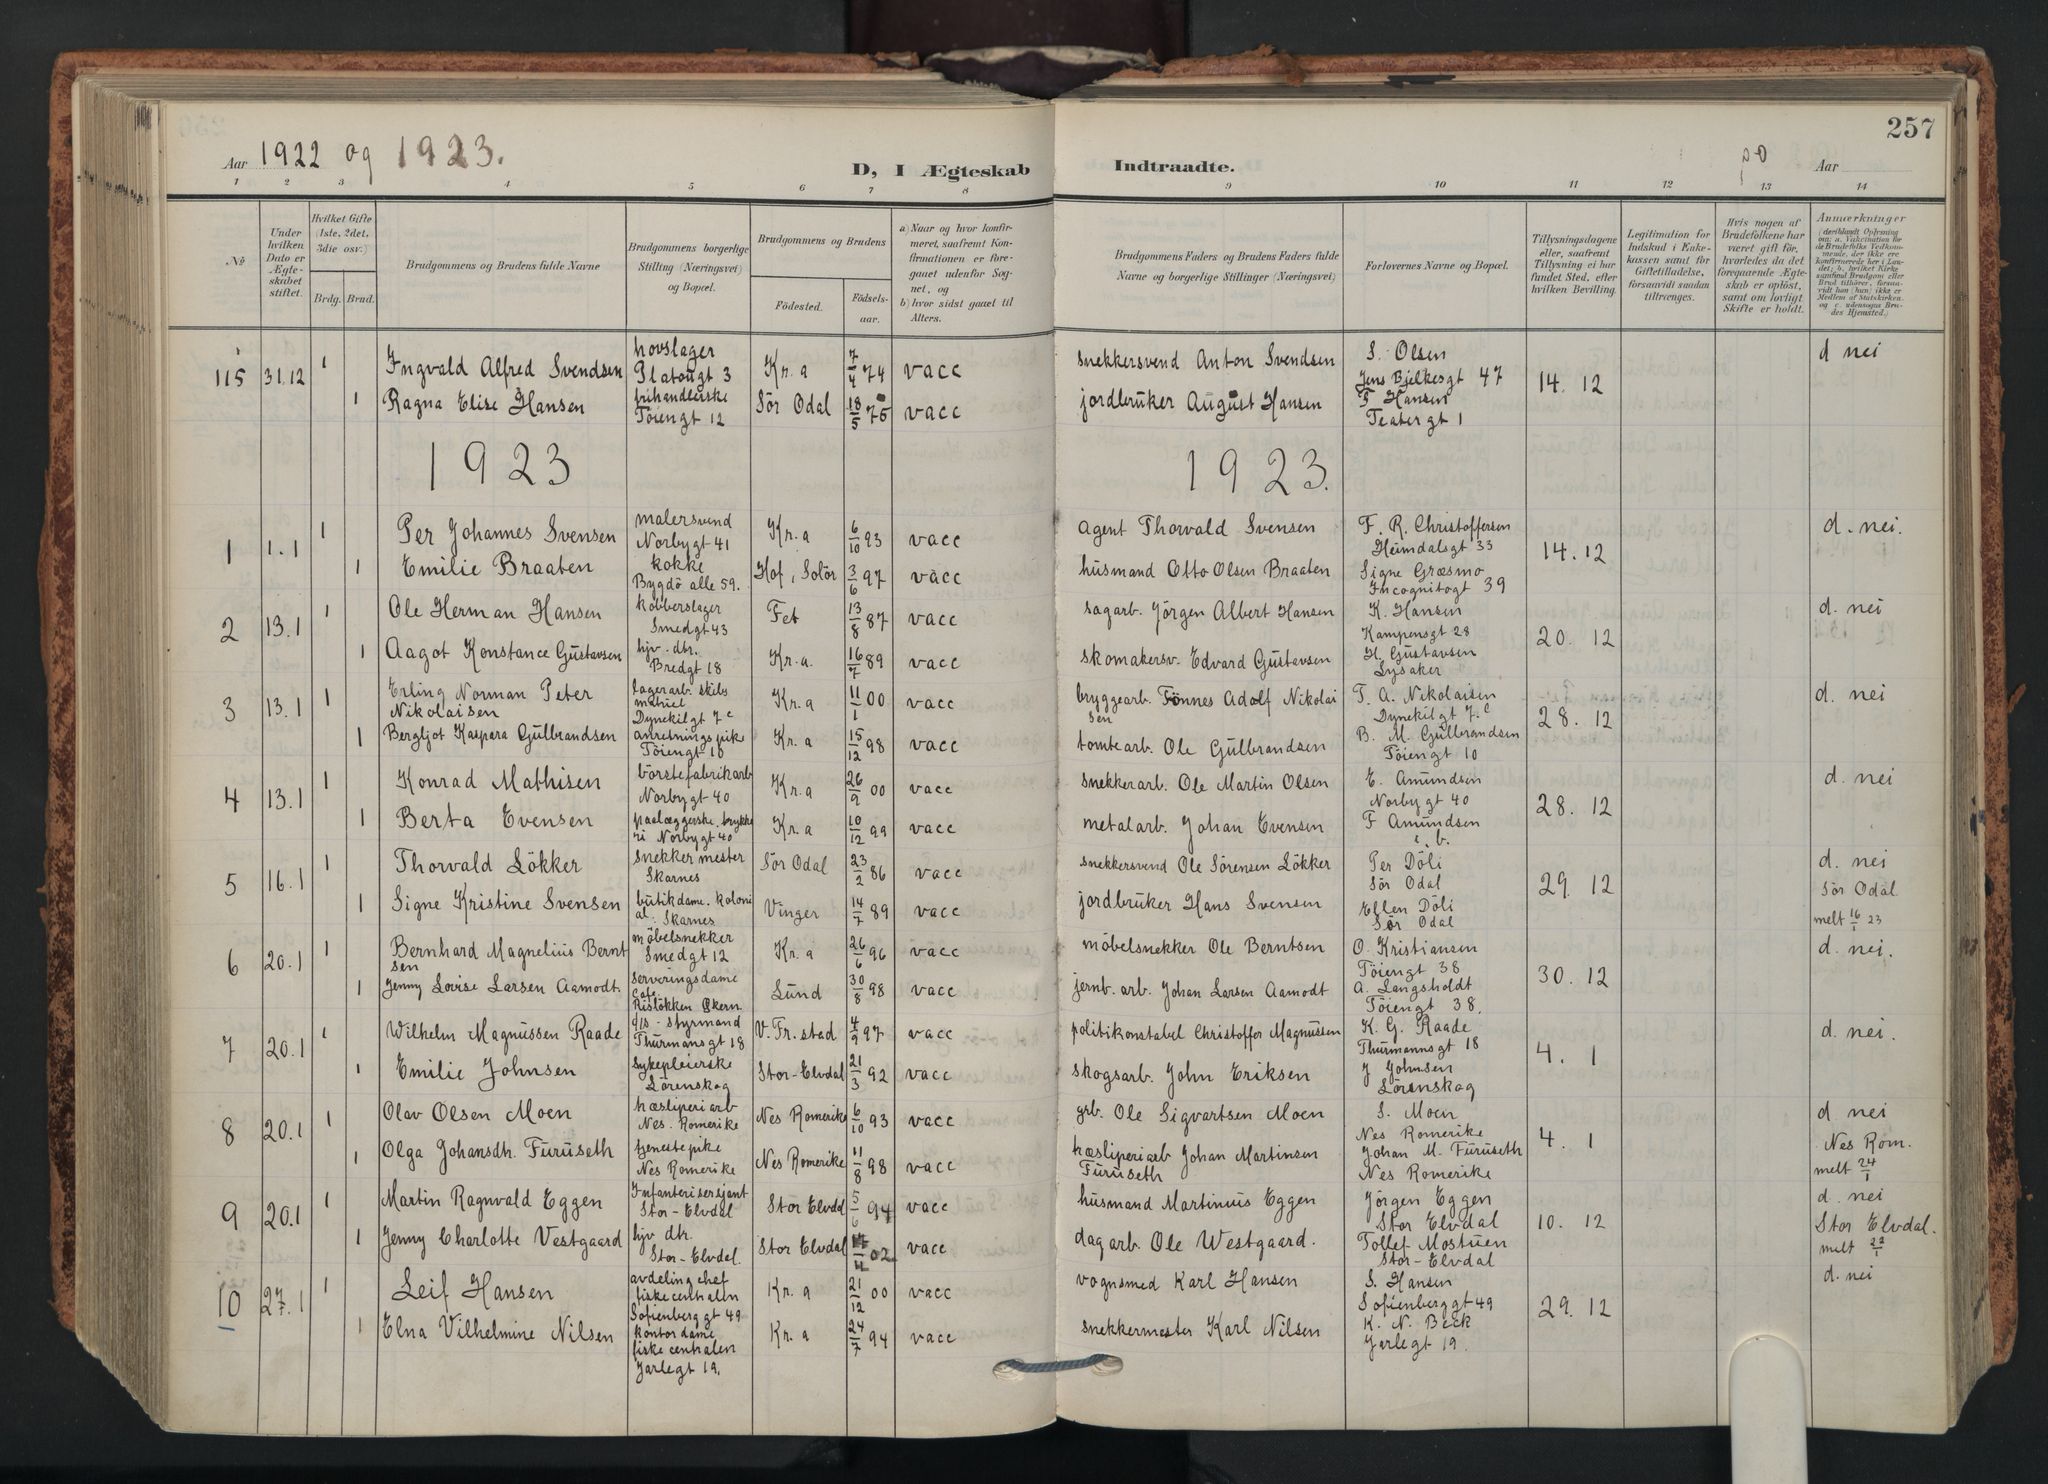 257
Aar 1922 og 1923.
D, I Ægteskab Indtraadte.
og Aar
1 2 3 4 5 6 7 8 9 10 11 12 13 14
No
Under hvilken Dato er Ægteskabet stiftet.
Hvilket Gifte (1ste, 2det, 3die osv.)
Brdg. Brud.
Brudgommens og Brudens fulde Navne
Brudgommens borgerlige Stilling (Næringsvei) og Bopæl.
Brudgommens og Brudens
Fødested. Fødselsaar.
a) Naar og hvor konfirmeret, saafremt Konfirmationen er foregaaet udenfor Sognet, og
b) hvor sidst gaaet til Alters.
Brudgommens Faders og Brudens Faders fulde Navne og borgerlige Stillinger (Næringsvei)
Forlovernes Navne og Bopæl.
Tillysningsdagene eller, saafremt Tillysning ei har fundet Sted, efter hvilken Bevilling.
Legitimation for Indskud i Enkekassen samt for Giftetilladelse, forsaavidt saadan tiltrænges.
Hvis nogen af Brudefolkene har været gift før, hvorledes da det foregaaende Ægteskab er opløst, samt om lovligt Skifte er holdt.
Anmærkninger
(deriblandt Oplysning om: a. Vakcination for de Brudefolks Vedkommende, der ikke ere konfirmerede her i Landet; b. hvilket Kirkesamfund Brudgom eller Brud tilhører, forsaavidt han (hun) ikke er Medlem af Statskirken og c. udensogns Brudes Hjemsted.)
115 31.12 1 Ingvald Alfred Svendsen hovslager Platougt 3 Kr.a 7/4 74 vacc snekkersvend Anton Svendsen S. Olsen Jens Bjelkesgt 47 14. 12 d nei
1 Ragna Elise Hansen frihandlerske Töiengt 12 Sör Odal 18/5 75 vacc jordbruker August Hansen F Hansen Teatergt 1
1923 1923.
1 1.1 1 Per Johannes Svensen malersvend Norbygt 41 Kr.a 6/10 93 vacc agent Thorvald Svensen F. R. Christoffersen Heimdalsgt 33 14. 12 d. nei.
1 Emilie Braaten kokke Bygdö alle 59. Hof, Solör 3/6 97 vacc husmand Otto Olsen Braaten Signe Græsmo Incognitogt 39
2 13.1 1 Ole Herman Hansen kobberslager Smedgt 43 Fet 13/8 87 vacc sagarb. Jörgen Albert Hansen K. Hansen Kampensgt 28 20. 12 d. nei
1 Aagot Konstance Gustavsen hjv. dtr. Bredgt 18 Kr.a. 16/7 89 vacc skomakersv. Edvard Gustavsen H. Gustavsen Lysaker
3 13.1 1 Erling Norman Peter Nikolaisen lagerarb. skibs Dynekilgt 7c Kr.a 11/1 00 vacc bryggearb. Tönnes Adolf Nikolaisen T. A. Nikolaisen Dynekilgt 7.c 28. 12 d. nei
1 Bergljot Kaspara Gulbrandsen anretningspike Töiengt 10 Kr.a 15/12 98 vacc tomtearb. Ole Gulbrandsen B. M. Gulbrandsen Töiengt 10
4 13.1 1 Konrad Mathisen börstefabrikarb Norbygt 40 Kr.a 26/9 00 vacc snekkerarb. Ole Martin Olsen E. Amundsen Norbygt 40 28. 12 d. nei
1 Berta Evensen paalæggerske. trykkeri Norbygt 40 Kr.a 10/12 99 vacc metalarb. Johan Evensen F Amundsen i. b.
5 16.1 1 Thorvald Lökker snekkermester Skarnes Sör Odal 23/2 86 vacc snekkersvend Ole Sörensen Lökker Per Döli Sör Odal 29. 12 d. nei Sör Odal
1 Signe Kristine Svensen butikdame. kolonial. Skarnes Vinger 14/7 89 vacc jordbruker Hans Svensen Ellen Döli Sör Odal melt 16/1 23
6 20.1 1 Bernhard Magnelius Berntsen möbelsnekker Smedgt 12 Kr.a 26/6 96 vacc möbelsnekker Ole Berntsen O. Kristiansen Töiengt 38 30. 12 d. nei.
1 Jenny Lovise Larsen Aamodt. serveringsdame Cafe Risløkken Økern Lund 30/8 98 vacc jernb. arb. Johan Larsen Aamodt A. Langsholdt Töiengt 38.
7 20.1 1 Wilhelm Magnussen Raade d/s - styrmand Thurmansgt 18 V. Fr.stad 4/9 97 vacc politikonstabel Christoffer Magnussen K. G. Raade Thurmannsgt 18 4. 1 d. nei.
1 Emilie Johnsen sykepleierske Lörenskog Stor-Elvdal 21/3 92 vacc skogsarb. John Eriksen J Johnsen Lörenskog
8 20.1 1 Olav Olsen Moen træsliperiarb Nes. Romerike Nes Romerike 6/10 93 vacc grb. Ole Sigvartsen Moen S. Moen Nes Romerike 4. 1 d. nei Nes Rom.
1 Olga Johansdtr. Furuseth tjenestepike Nes Romerike Nes Romerike 11/8 98 vacc træsliperiarb Johan Martinsen Furuseth Johan M. Furuseth Nes Romerike melt 24/1
9 20.1 1 Martin Ragnvald Eggen Infanterisersjant Stor-Elvdal Stor Elvdal 5/6 94 vacc husmand Martinius Eggen Jörgen Eggen Stor Elvdal 10. 12 d. nei Stor Elvdal.
1 Jenny Charlotte Vestgaard hjv dtr. Stor-Elvdal. Stor Elvdal 02 vacc dagarb. Ole Westgaard. Tollef Mostuen Stor-Elvdal melt 22/1
10 27.1 1 Leif Hansen avdeling chef fiskecentralen Sofienberggt 49 Kr. a 21/12 00 vacc vognsmed Karl Hansen S. Hansen Sofienberggt 49 29. 12 d. nei
1 Elna Vilhelmine Nilsen kontordame fiskecentralen Jarlegt 19. Kr. a 24/7 94 vacc snekkermester Karl Nilsen K. N. Beck Jarlegt 19.